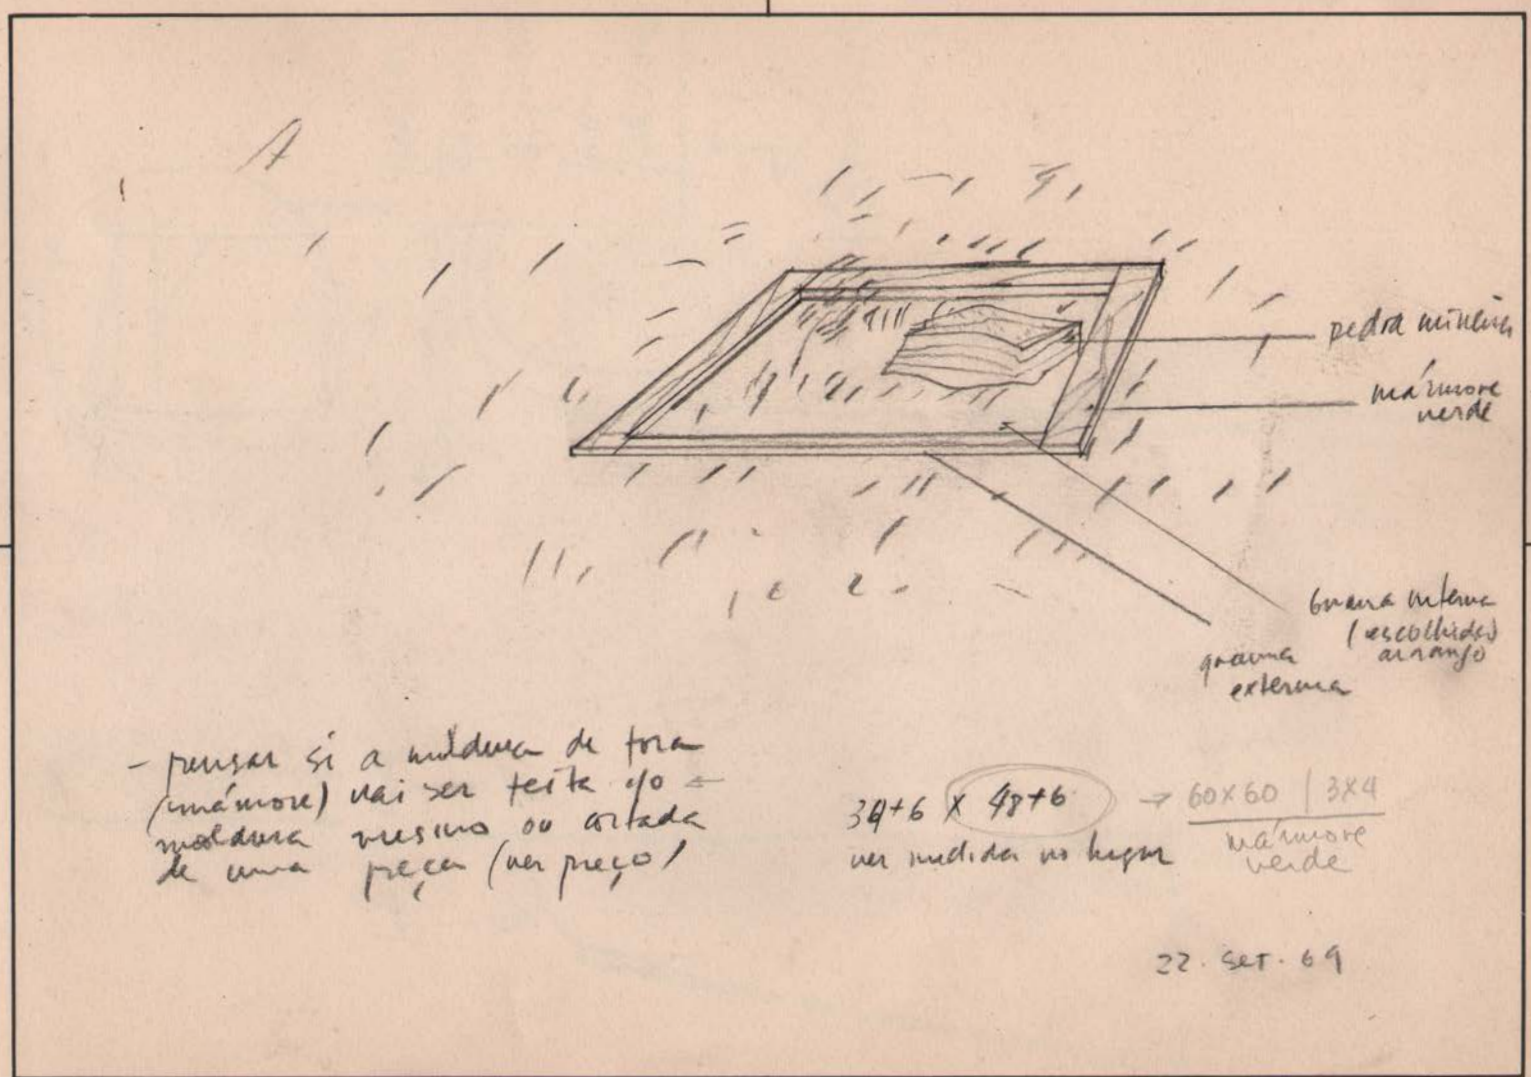 A
pedra mineira
mármore
verde
grama interna
(escolhida)
arranjo
grama
externa
- pensar si a moldura de fora
(mármore) vai ser feita c/o
moldura mesmo ou cortada
de uma peça (ver preço)
34+6 x 48+6 → 60x60 | 3x4
ver medida no lugar mármore
verde
22. set. 69